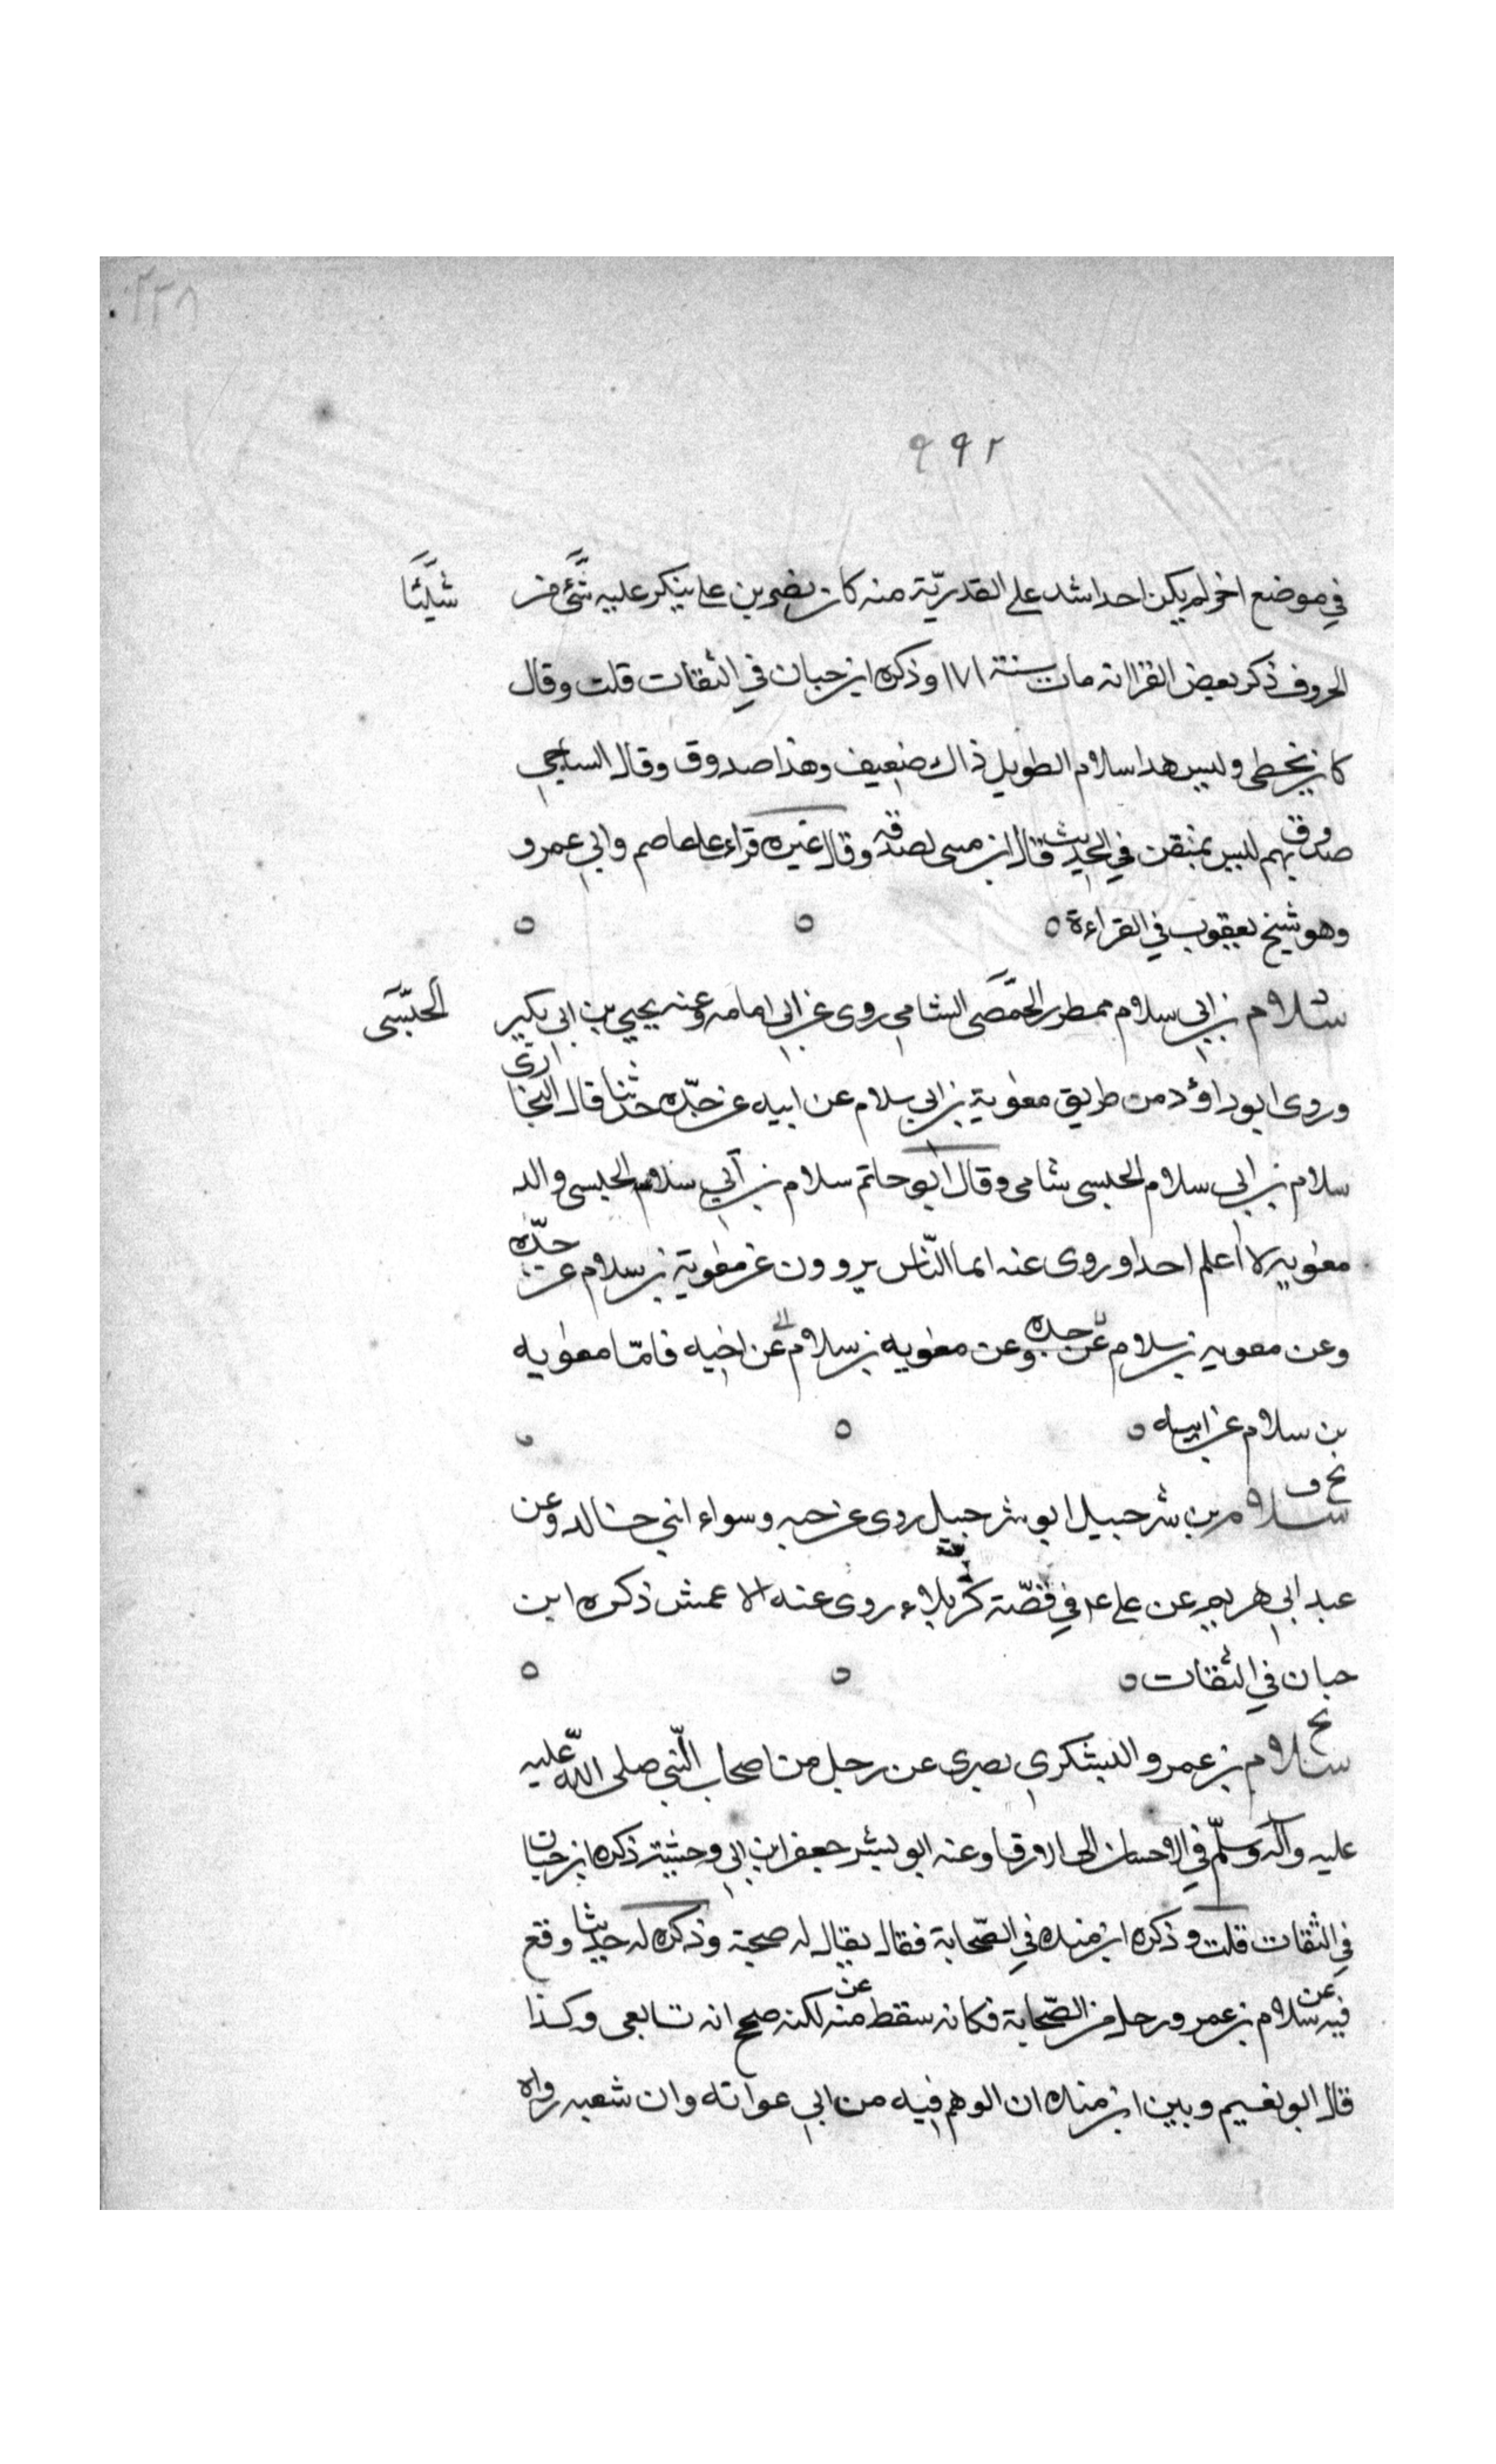 ٢٣٨
٩٩٢
في موضع اخر لم يكن احد اشد على القدريّة منه كان نصر بن على ينكر عليه شئ من شيئا
الحروف ذكر بعض القرا انه مات سنة ١٧١ وذكره ابن حبان في الثقات قلت وقال
كان يخطى وليس هذا سلام الطويل ذاك ضعيف وهذا صدوق وقال الساجى
صدوق يهم ليس بمتقن في الحديث قال ابن معين وقال غيره قراء على عاصم وابي عمرو
وهو شيخ يعقوب في القراءة
سلام بن ابي سلام ممطور الحمصى الشامي روى عن ابى امامه وعنه يحيى بن ابى بكير الحبشى
وروى ابو داؤد من طريق معٰوية بن ابي سلام عن ابيه عن جدّه حديثا قال البخارى
سلام بن ابي سلام الحبسى شامى وقال ابو حاتم سلام بن أبي سلام الحبسى والد
معٰويه لا اعلم احدا روى عنه انما النّاس يروون عن معٰوية بن سلام عن جدّه
وعن معويه بن سلام عن جده وعن معٰويه بن سلام عن اخيه فامّا معٰويه
بن سلام عن ابيه
بخ ف سلام بن شرحبيل ابو شرحبيل روى عن حبه وسواء ابني خالد وعن
عبد ابي هريم عن على في قصّة كربلاء روى عنه الاعمش ذكره ابن
حبان في الثقات
بخ سلام بن عمرو اليشكري بصرى عن رجل من اصحاب النّبي صلى اللّه عليه
عليه وآله وسلّم في الاحسان الى الارقا وعنه ابو بشر جعفر ابن ابي وحشية ذكره ابن حبان
في الثقات قلت وذكره ابن منده في الصّحابة فقال يقال له صحبة وذكره له حديثا وقع
فيه عن سلام بن عمرو رجل من الصّحابة فكانه سقط منه عن لكنه صح انه تابعى وكذا
قال ابو نعيم وبين ابن منده ان الوهم فيه من ابي عوانه وان شعبه رواه